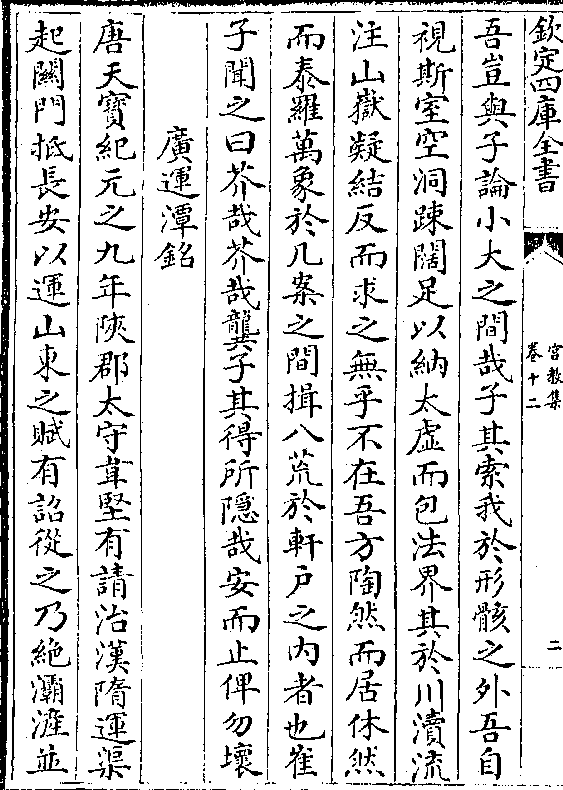 欽定四庫全書
宮教集
卷十二
二
吾豈與子論小大之間哉子其索我於形骸之外吾自
視斯室空洞踈闊足以納太虛而包法界其於川瀆流
注山嶽凝結反而求之無乎不在吾方陶然而居休然
而泰羅萬象於几案之間揖八荒於軒戶之内者也崔
子聞之曰芥哉芥哉龔子其得所隱哉安而止俾勿壞
廣運潭銘
唐天寶紀元之九年陜郡太守韋堅有請治漢隋運渠
起關門抵長安以運山東之賦有詔從之乃絶灞滻並